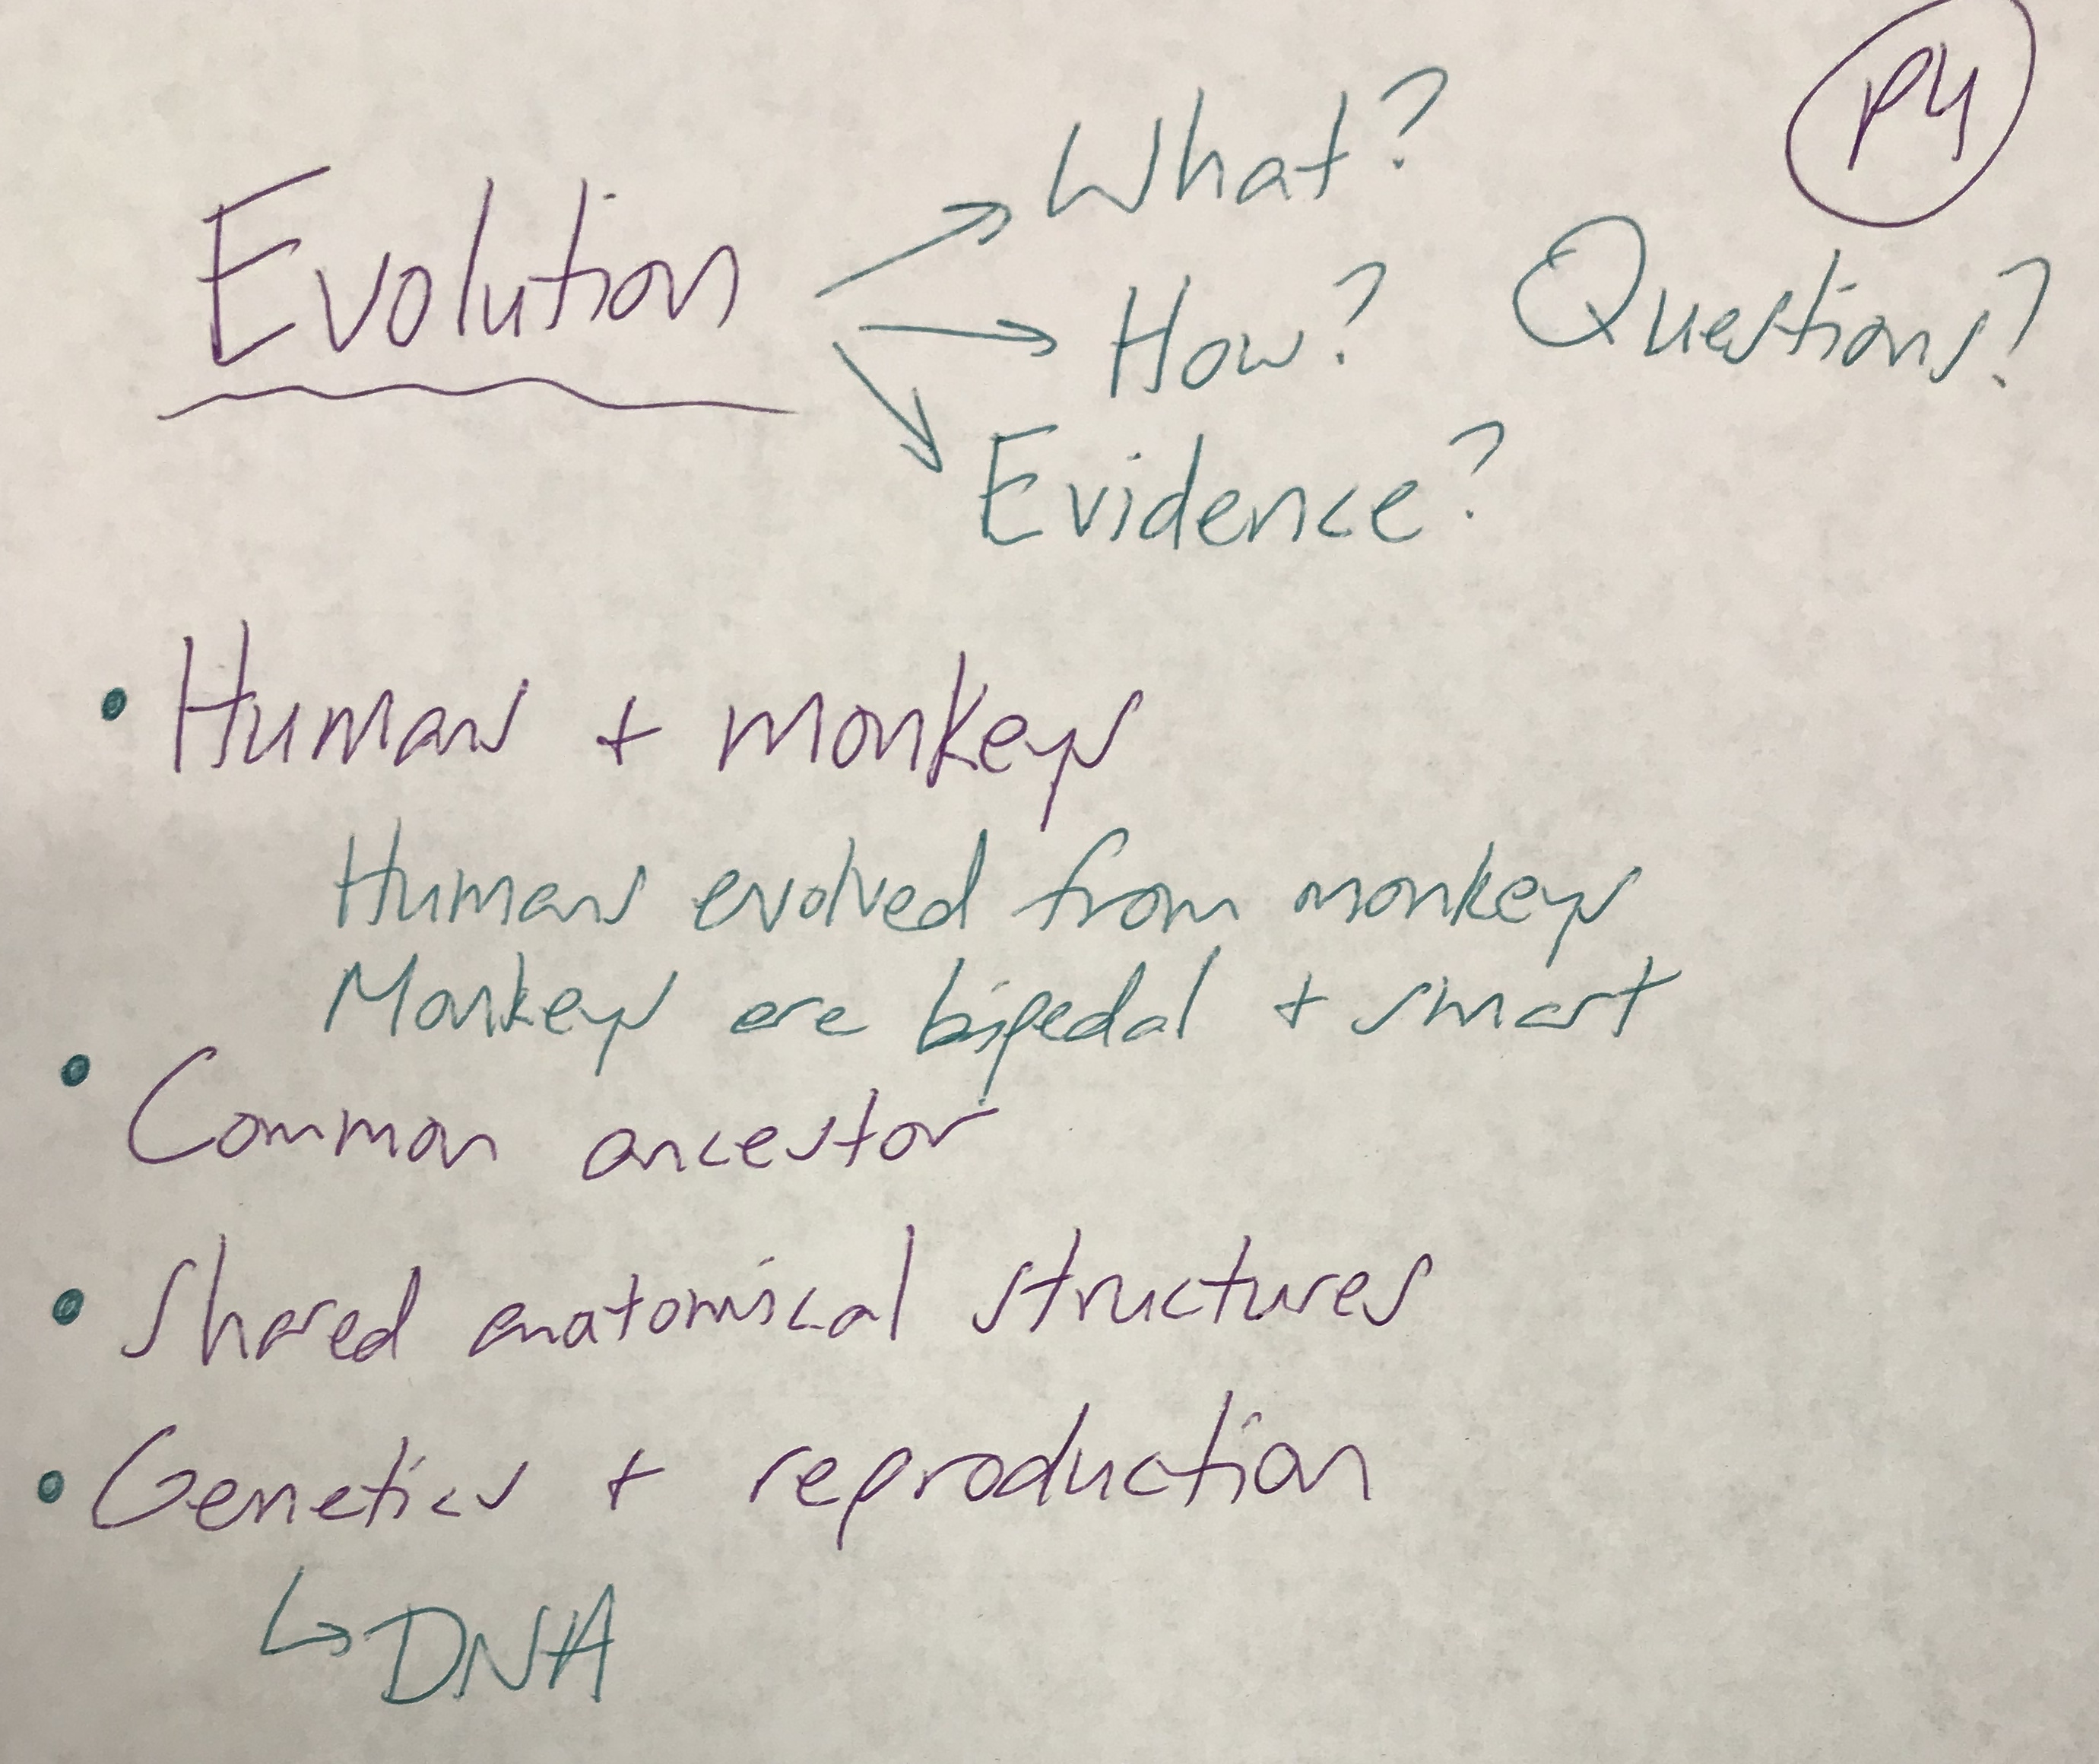 P4
What?
Evolution
How?
Questions?
Evidence?
• Humans + monkeys
Humans evolved from monkeys
Monkeys are bipedal + smart
• Common ancestor
• Shared anatomical structures
• Genetics + reproduction
↳ DNA